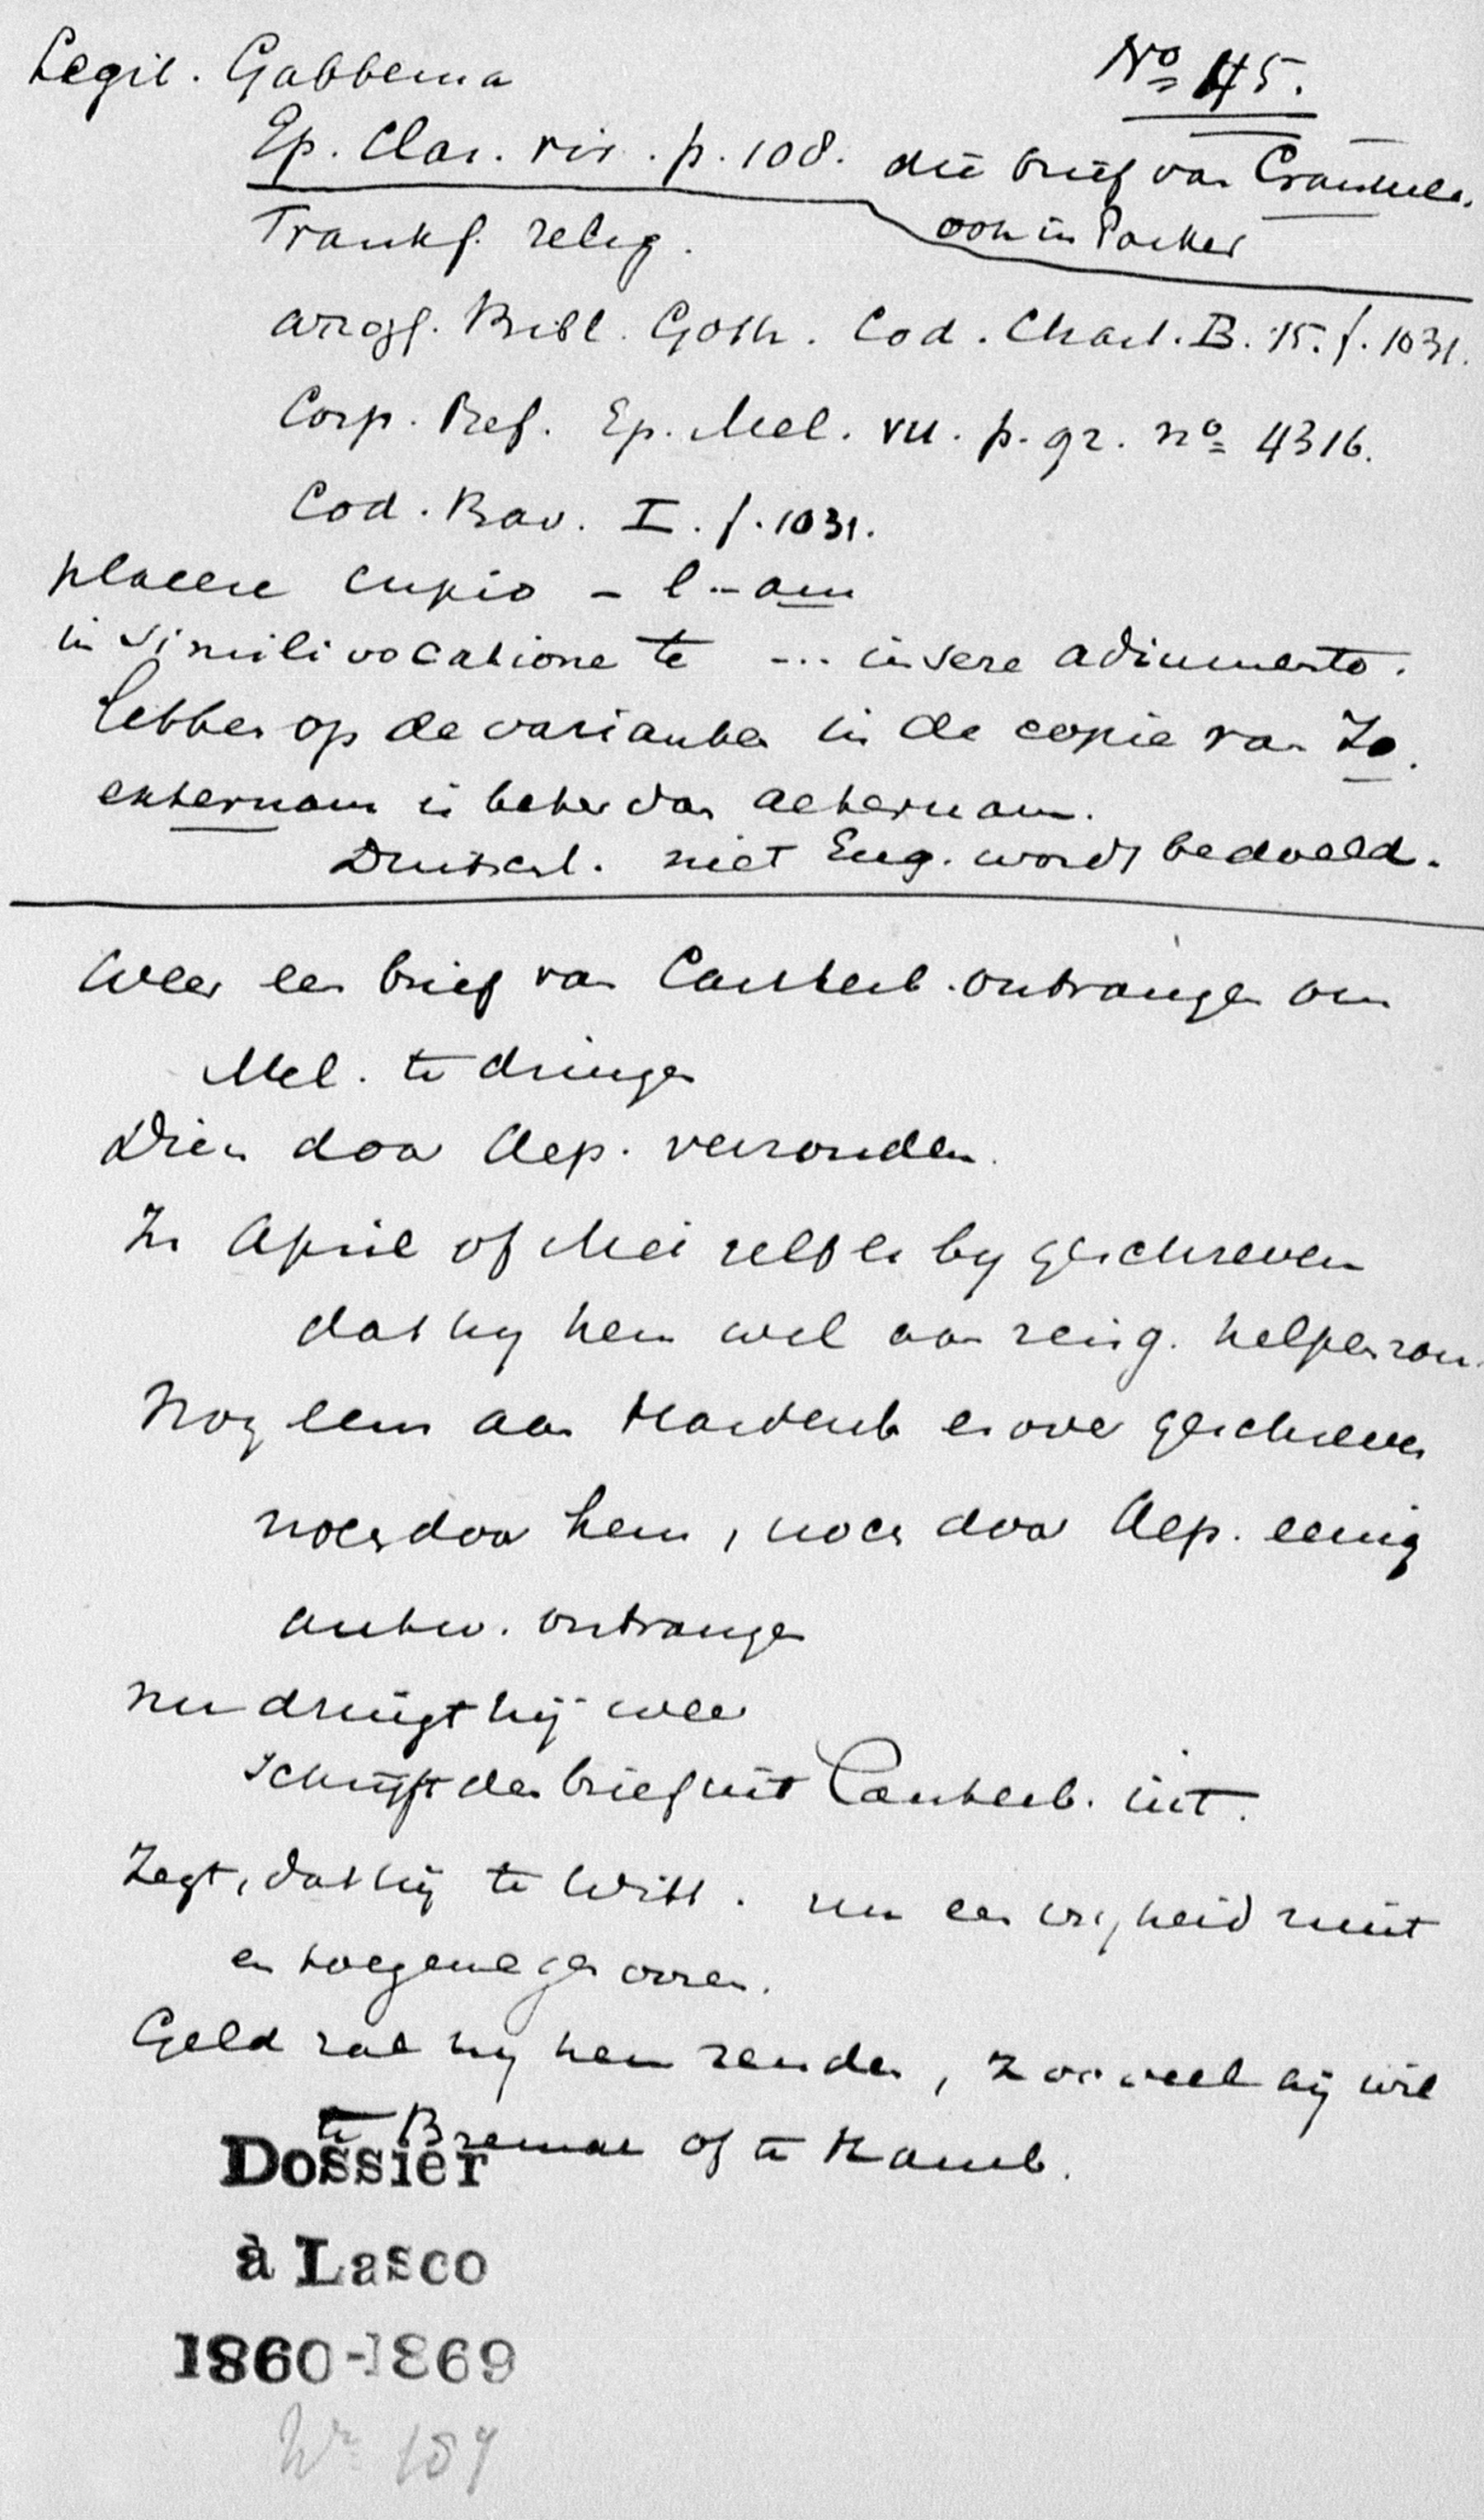 Legit. Gabbema
No 45.
Ep. Clar. vir. p. 108. die brief van Cranmer.
ook in Parker
Frankf. relig.
autogr. Bibl. Goth. Cod. Chart. B. 15. f. 1031.
Corp. Ref. Ep. Mel. VII. p. 92. no 4316.
Cod. Bav. I. f. 1031.
placere cupio - l..am
in simili vocatione te ... insere adiumento.
letten op de varianten in de copie van
externam is beter dan aeternam.
Duitschl. niet Eng. wordt bedoeld.
Weer een brief van Canterb. ontvangen om
Mel. te dringen
Dien door Aep. verzonden.
In April of Mei zelf er by geschreven
dat hy hem wel aan reisg. helpen zou.
Nog eens aan Hardenb erover geschreven
noch door hem, noch door Aep. eenig
antw. ontvangen
nu dringt hij weer
Schrijft den brief uit Canterb. uit.
Zegt, dat hij te Witt. nu een vrijheid mist
en toegenegen ooren.
Geld zal hy hem zenden, zooveel hij wil
te Bremen of te Hamb.
Dossier
à Lasco
1860-1869
No 159